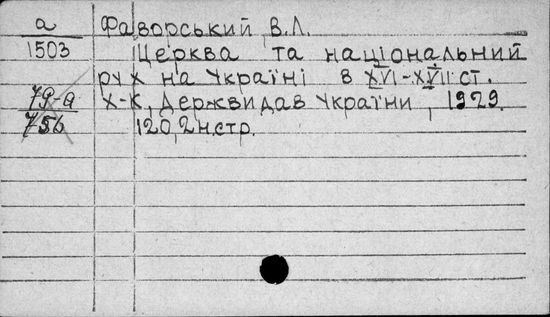 а Фаворський В.Л.
1503 Церква та національний
рух на Україні в XVI-XVII ст.
79-а Х-К, Держвидав України, 1929.
756 120, 2 н.стр.